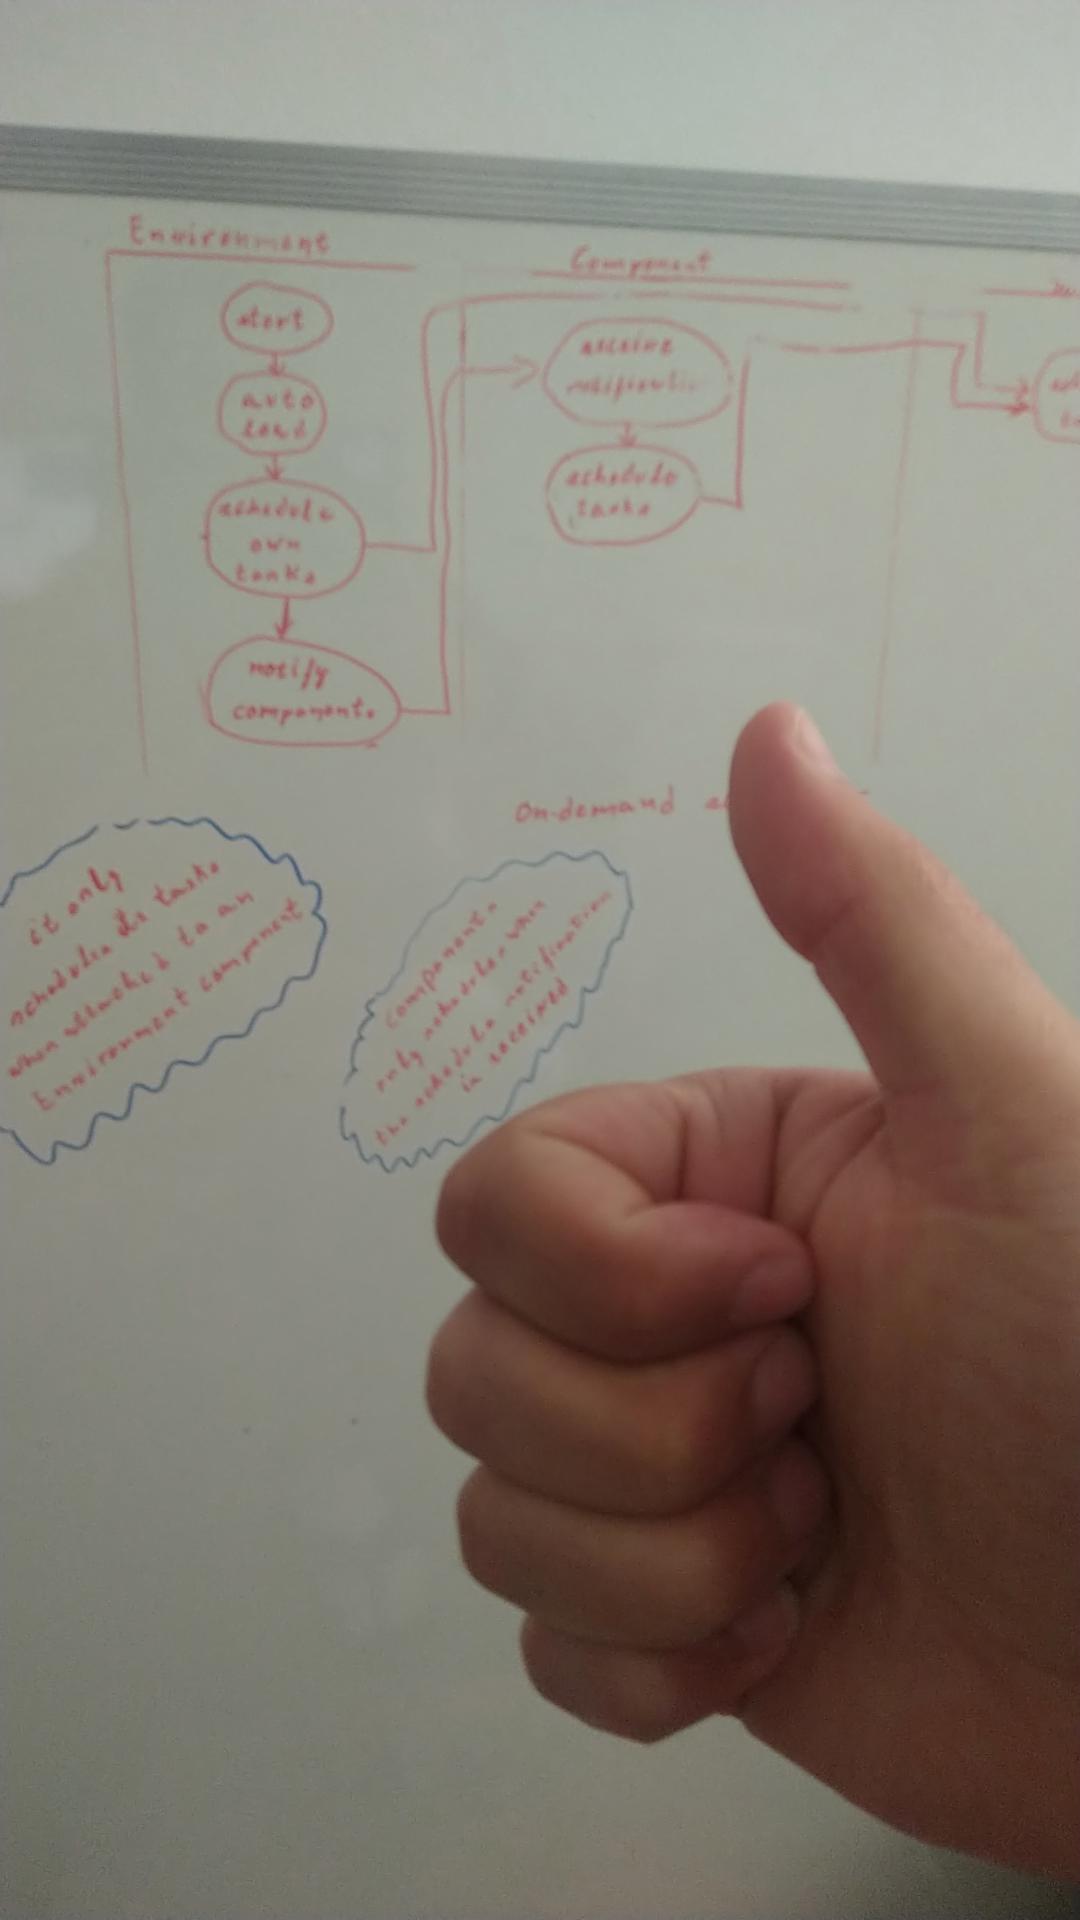 Environment
Component
start
auto
load
schedule
own
tasks
notify
components
receive
schedule
tasks
On-demand
it only
schedules its tasks
when attached to an
Environment component
components
only schedules when
the schedule notification
is received